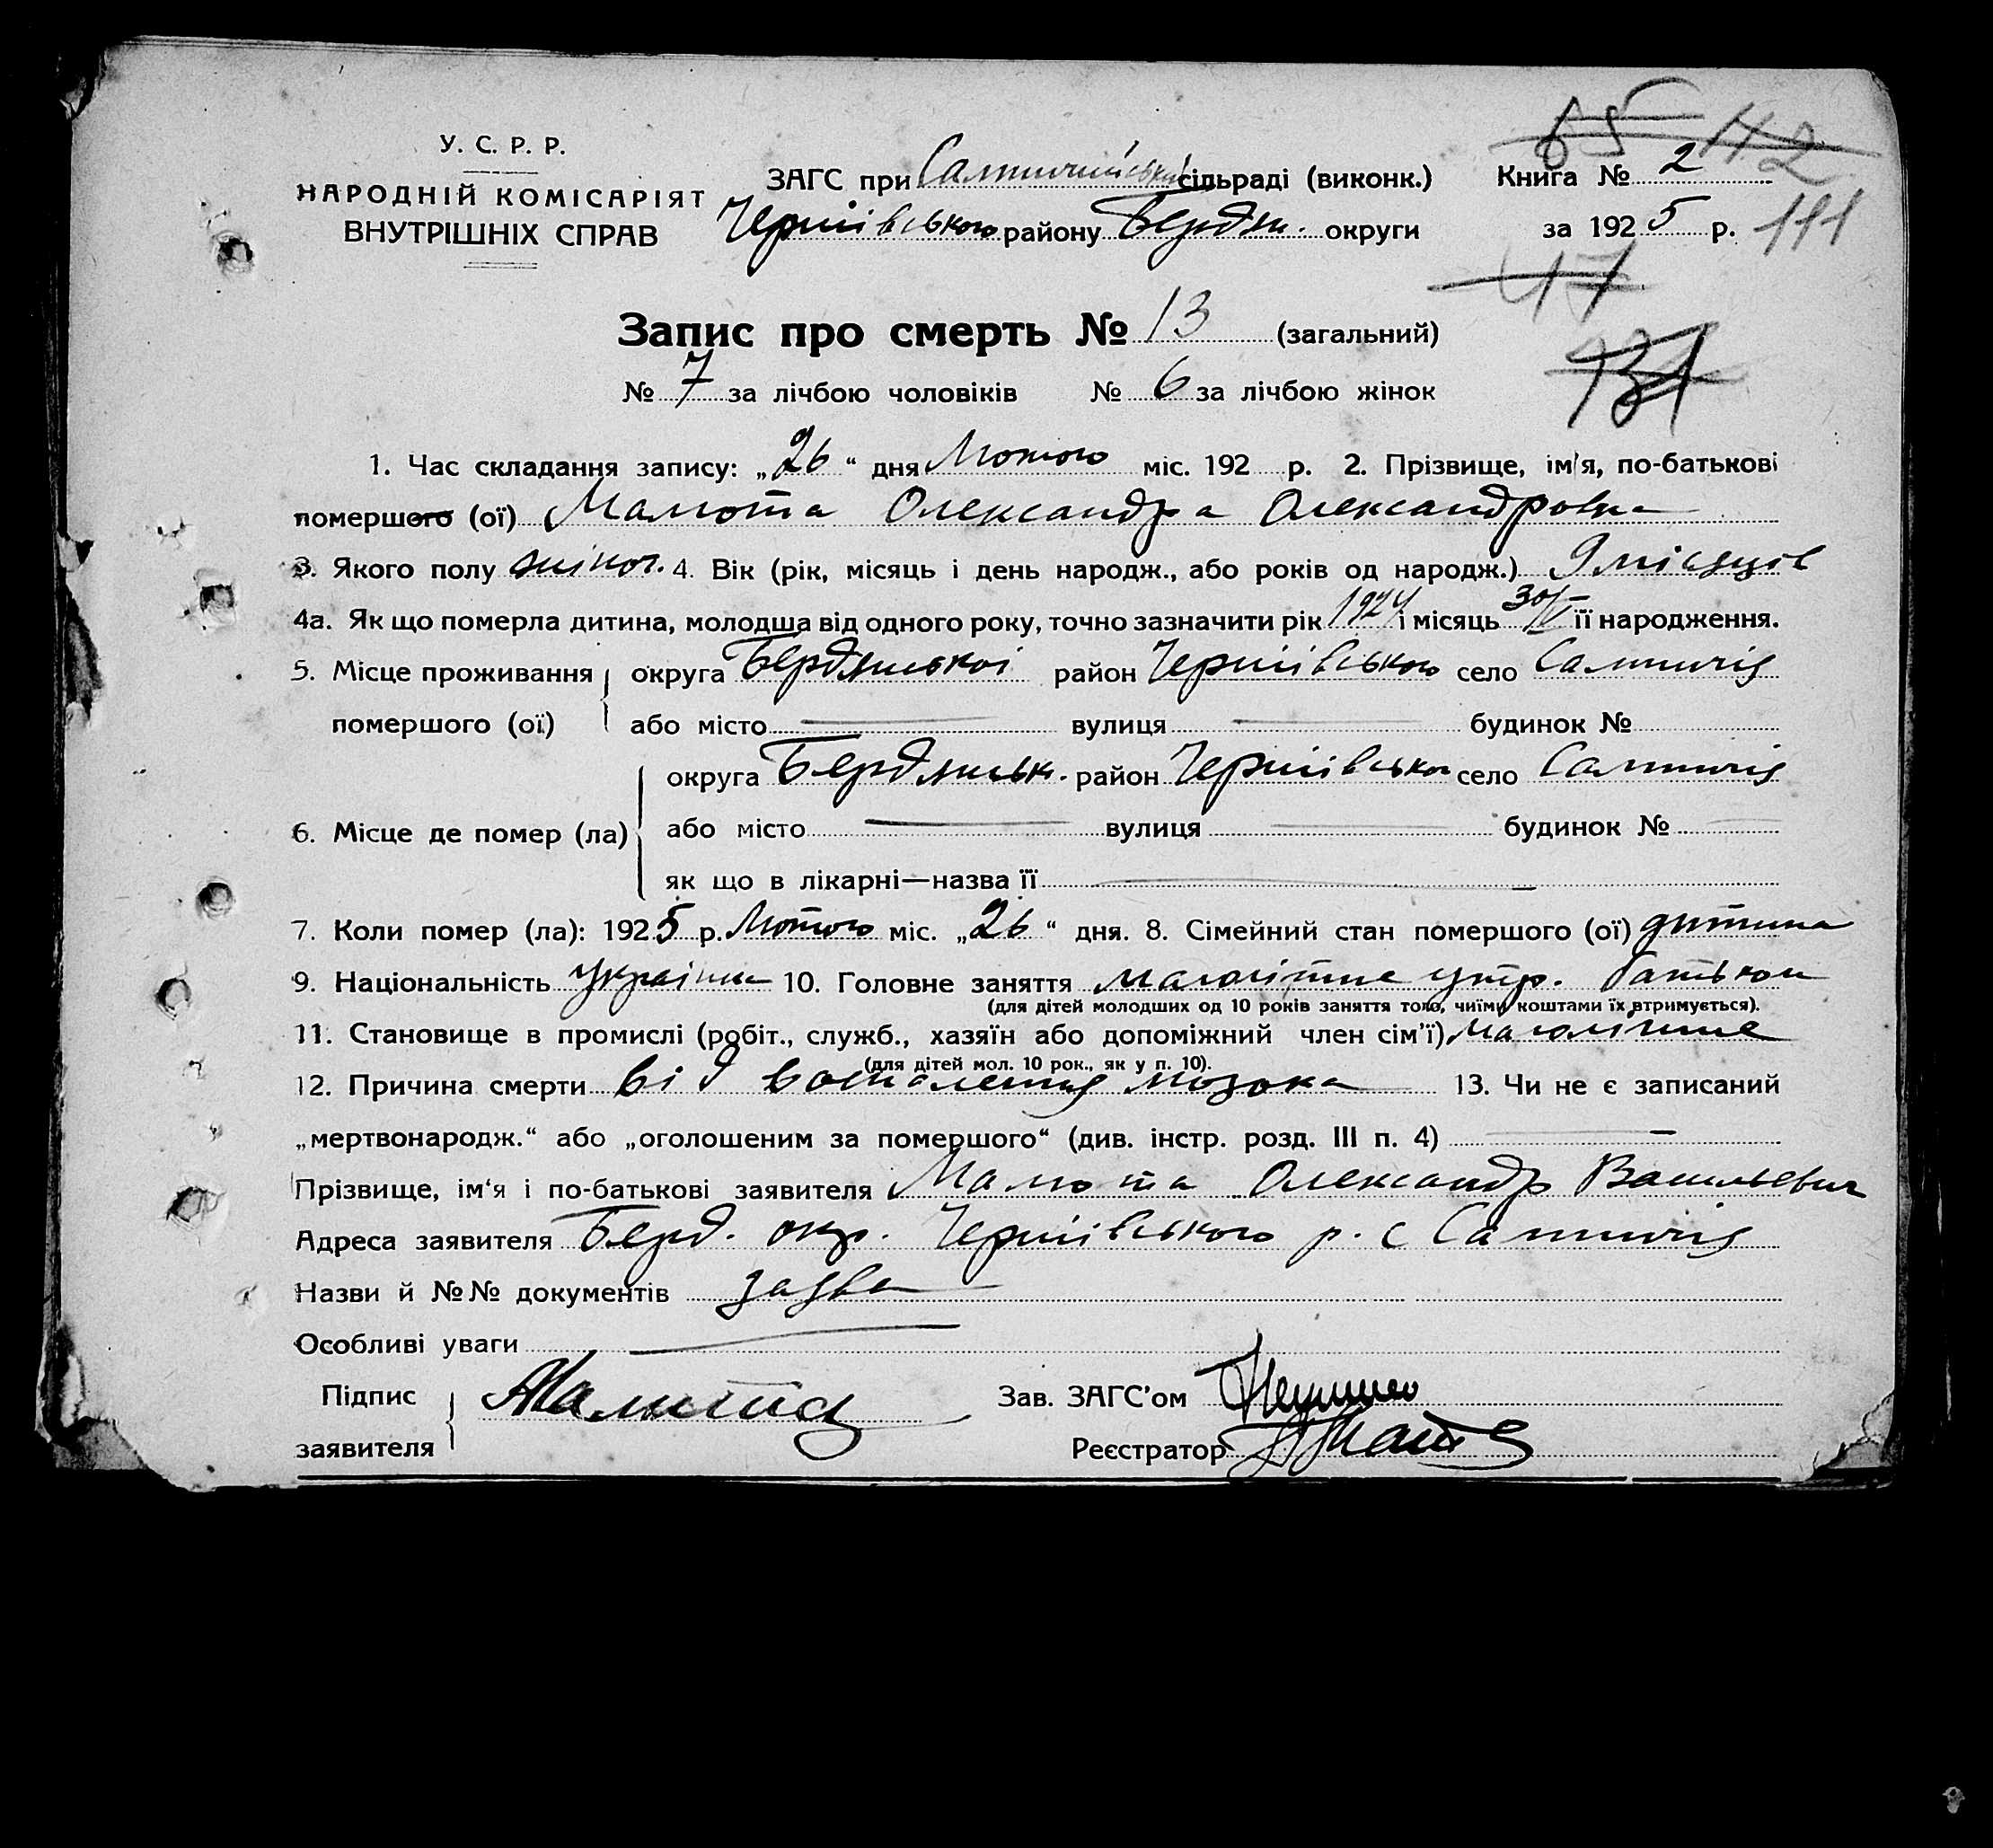 65 112
У. С. Р. Р.
НАРОДНІЙ КОМІСАРІЯТ
ВНУТРІШНІХ СПРАВ
ЗАГС при Салтичийській сільраді (виконк.)
Чернігівського району Бердян. округи
Книга № 2
за 1925 р. 111
47
Запис про смерть № 13 (загальний)
№ 7 за лічбою чоловіків № 6 за лічбою жінок
1. Час складання запису: „26“ дня Лютого міс. 192 р. 2. Прізвище, ім'я, по-батькові
помершого (ої) Малюта Олександра Олександровна
3. Якого полу жіноч. 4. Вік (рік, місяць і день народж., або років од народж.) 9 місяців
4а. Як що померла дитина, молодша від одного року, точно зазначити рік 1924 і місяць 30/V її народження.
5. Місце проживання округа Бердянської район Чернігівського село Салтичія
помершого (ої) або місто вулиця будинок №
округа Бердянськ. район Чернігівсько село Салтичія
6. Місце де помер (ла) або місто вулиця будинок №
як що в лікарні—назва її
7. Коли помер (ла): 1925 р. Лютого міс. „26“ дня. 8. Сімейний стан помершого (ої) дитина
9. Національність Українка 10. Головне заняття малолітнє утр. батьком
(для дітей молодших од 10 років заняття того, чиїми коштами їх втримується).
11. Становище в промислі (робіт., служб., хазяїн або допоміжний член сім'ї) малолітнє
(для дітей мол. 10 рок., як у п. 10).
12. Причина смерти від воспаления мозока 13. Чи не є записаний
„мертвонародж.“ або „оголошеним за помершого“ (див. інстр. розд. III п. 4)
Прізвище, ім'я і по-батькові заявителя Малюта Олександр Васильевич
Адреса заявителя Берд. окр. Чернігівського р. с Салтичія
Назви й №№ документів заява
Особливі уваги
Підпис заявителя Малюта
Зав. ЗАГС'ом
Реєстратор